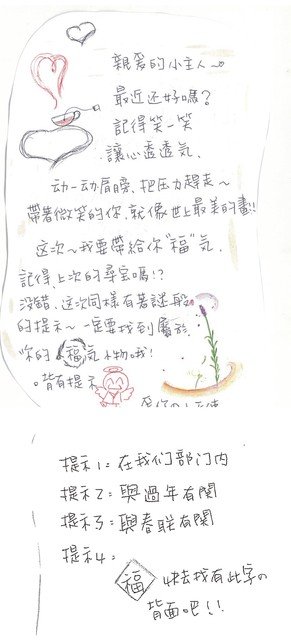 親爱的小主人~
最近还好嗎?
記得笑一笑
讓心透透氣.
动一动肩膀,把压力趕走~
帶著微笑的你,就像世上最美的畫!!
这次~我要帶給你"福"气.
記得上次的尋宝嗎!?
没錯,这次同樣有著謎般
的提示~一定要找到屬於
你的福気小物哦!
背有提示
提示1:在我们部门内
提示2:與過年有関
提示3:與春联有関
提示4:
福 快去找有此字の
背面吧!!